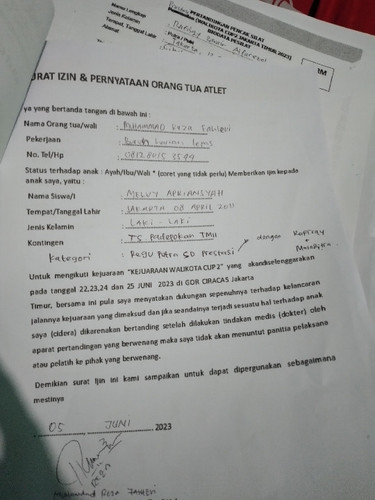 PERTANDINGAN PENCAK SILAT
BIODATA PESILAT
Nama Lengkap
Jenis Kelamin
Tempat, Tanggal Lahir
Alamat
Putra / Putri
URAT IZIN & PERNYATAAN ORANG TUA ATLET
ya yang bertanda tangan di bawah ini :
Nama Orang tua/wali : MUHAMMAD REZA FAHLEVI
Pekerjaan : Buruh harian lepas
No. Tel/Hp
Status terhadap anak : Ayah/Ibu/Wali * (coret yang tidak perlu) Memberikan Ijin kepada
anak saya, yaitu :
Nama Siswa/i : MELVY APRIANSYAH
Tempat/Tanggal Lahir : JAKARTA 08 APRIL 2011
Jenis Kelamin : LAKI - LAKI
Kontingen : TS Padepokan TMII
Kategori : REGU Putra SD Prestasi dengan
Untuk mengikuti kejuaraan "KEJUARAAN WALIKOTA CUP 2" yang akandiselenggarakan
pada tanggal 22,23,24 dan 25 JUNI 2023 di GOR CIRACAS Jakarta
Timur, bersama ini pula saya menyatakan dukungan sepenuhnya terhadap kelancaran
jalannya kejuaraan yang dimaksud dan jika seandainya terjadi sesuatu hal terhadap anak
saya (cidera) dikarenakan bertanding setelah dilakukan tindakan medis (dokter) oleh
aparat pertandingan yang berwenang maka saya tidak akan menuntut panitia pelaksana
atau pelatih ke pihak yang berwenang.
Demikian surat Ijin ini kami sampaikan untuk dapat dipergunakan sebagaimana
mestinya
05 JUNI 2023
Muhammad REZA FAHLEVI